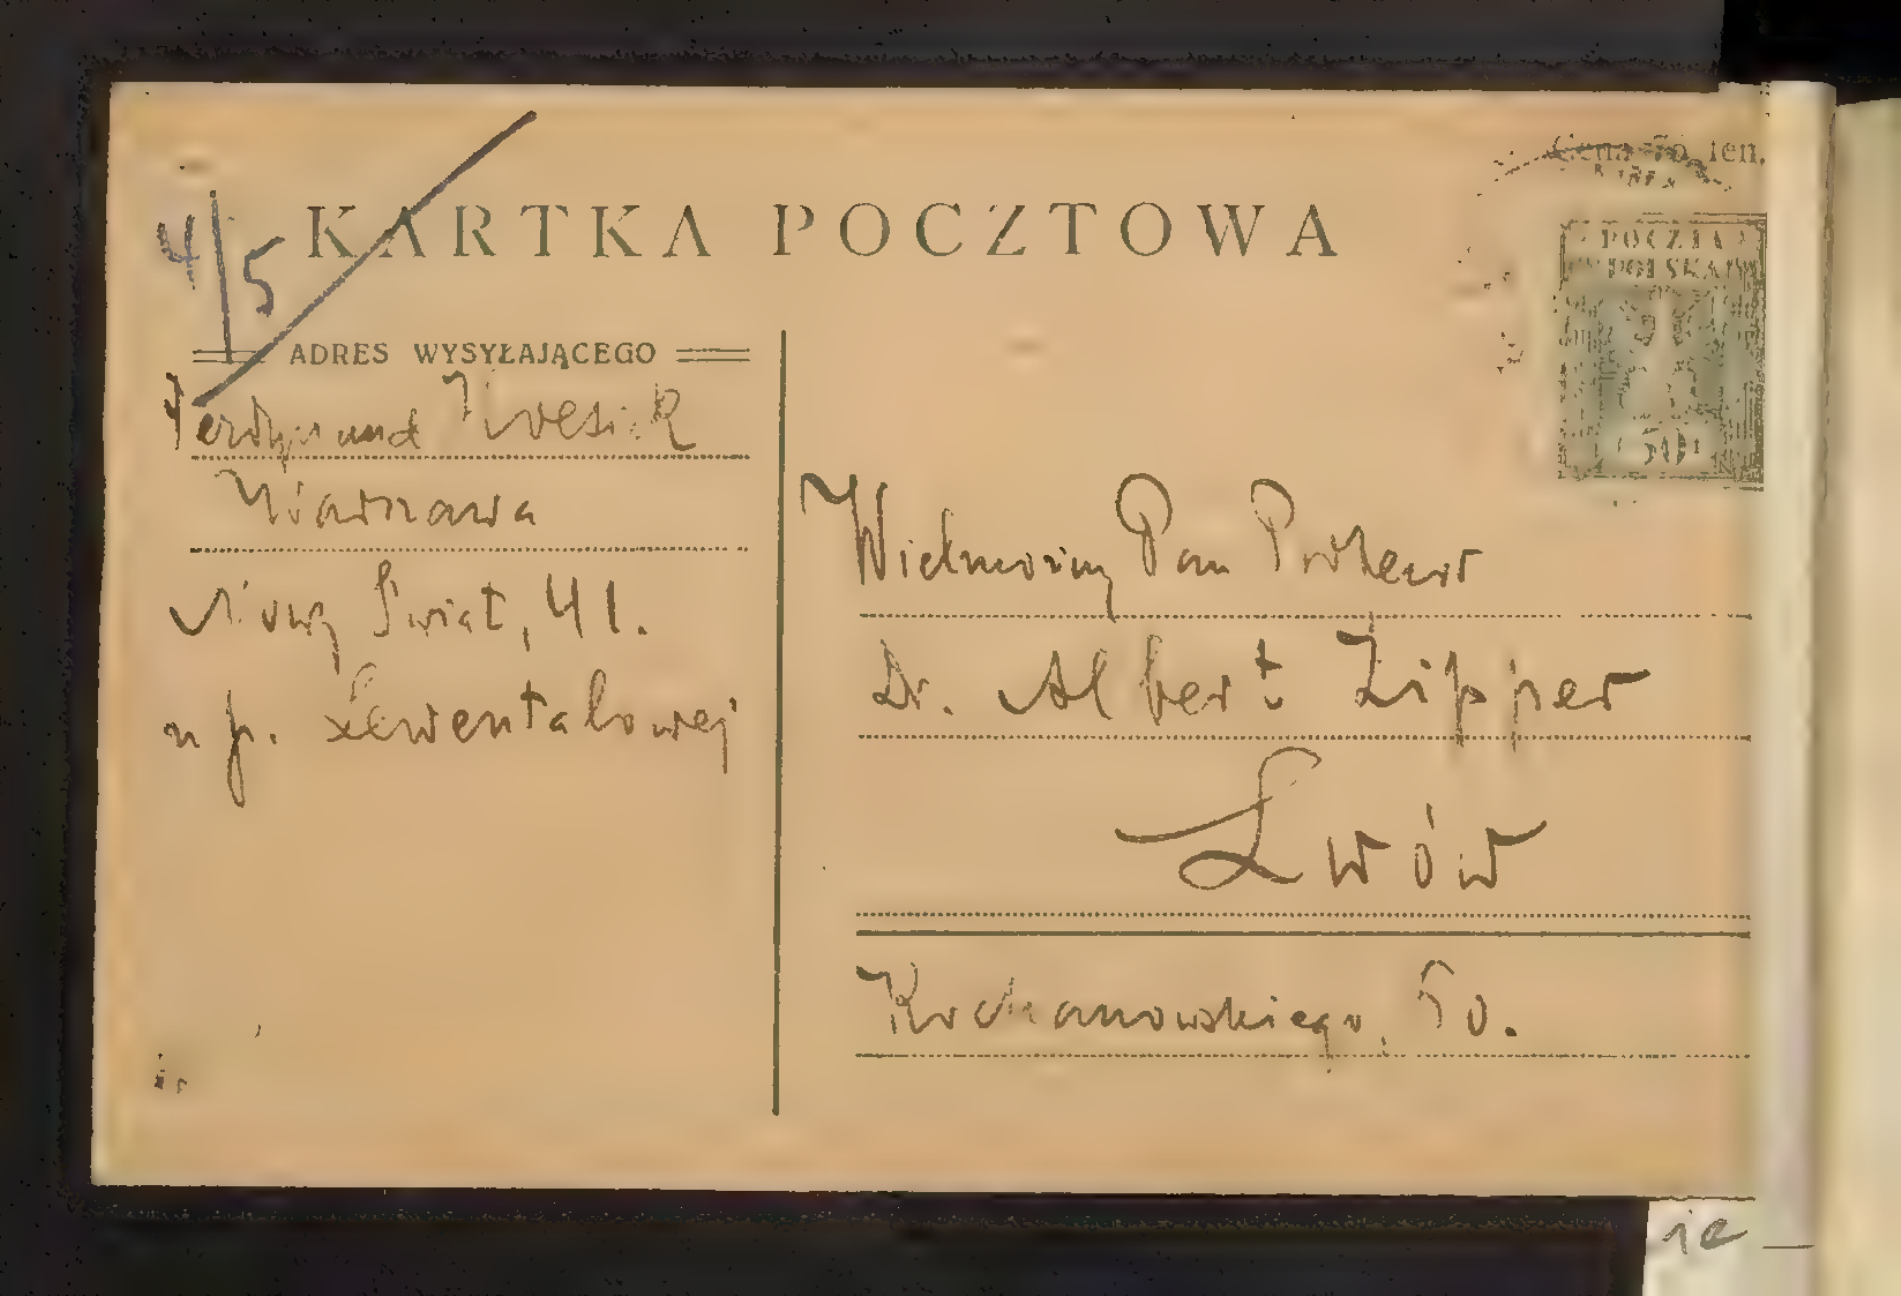 4/5
KARTKA POCZTOWA
POCZTA
POLSKA
50
ADRES WYSYŁAJĄCEGO
Ferdynand Hoesick
Warszawa
Nowy Świat, 41.
u p. Lewentalowej
Wielmożny Pan Profesor
Dr. Albert Zipper
Lwów
Kochanowskiego, 50.